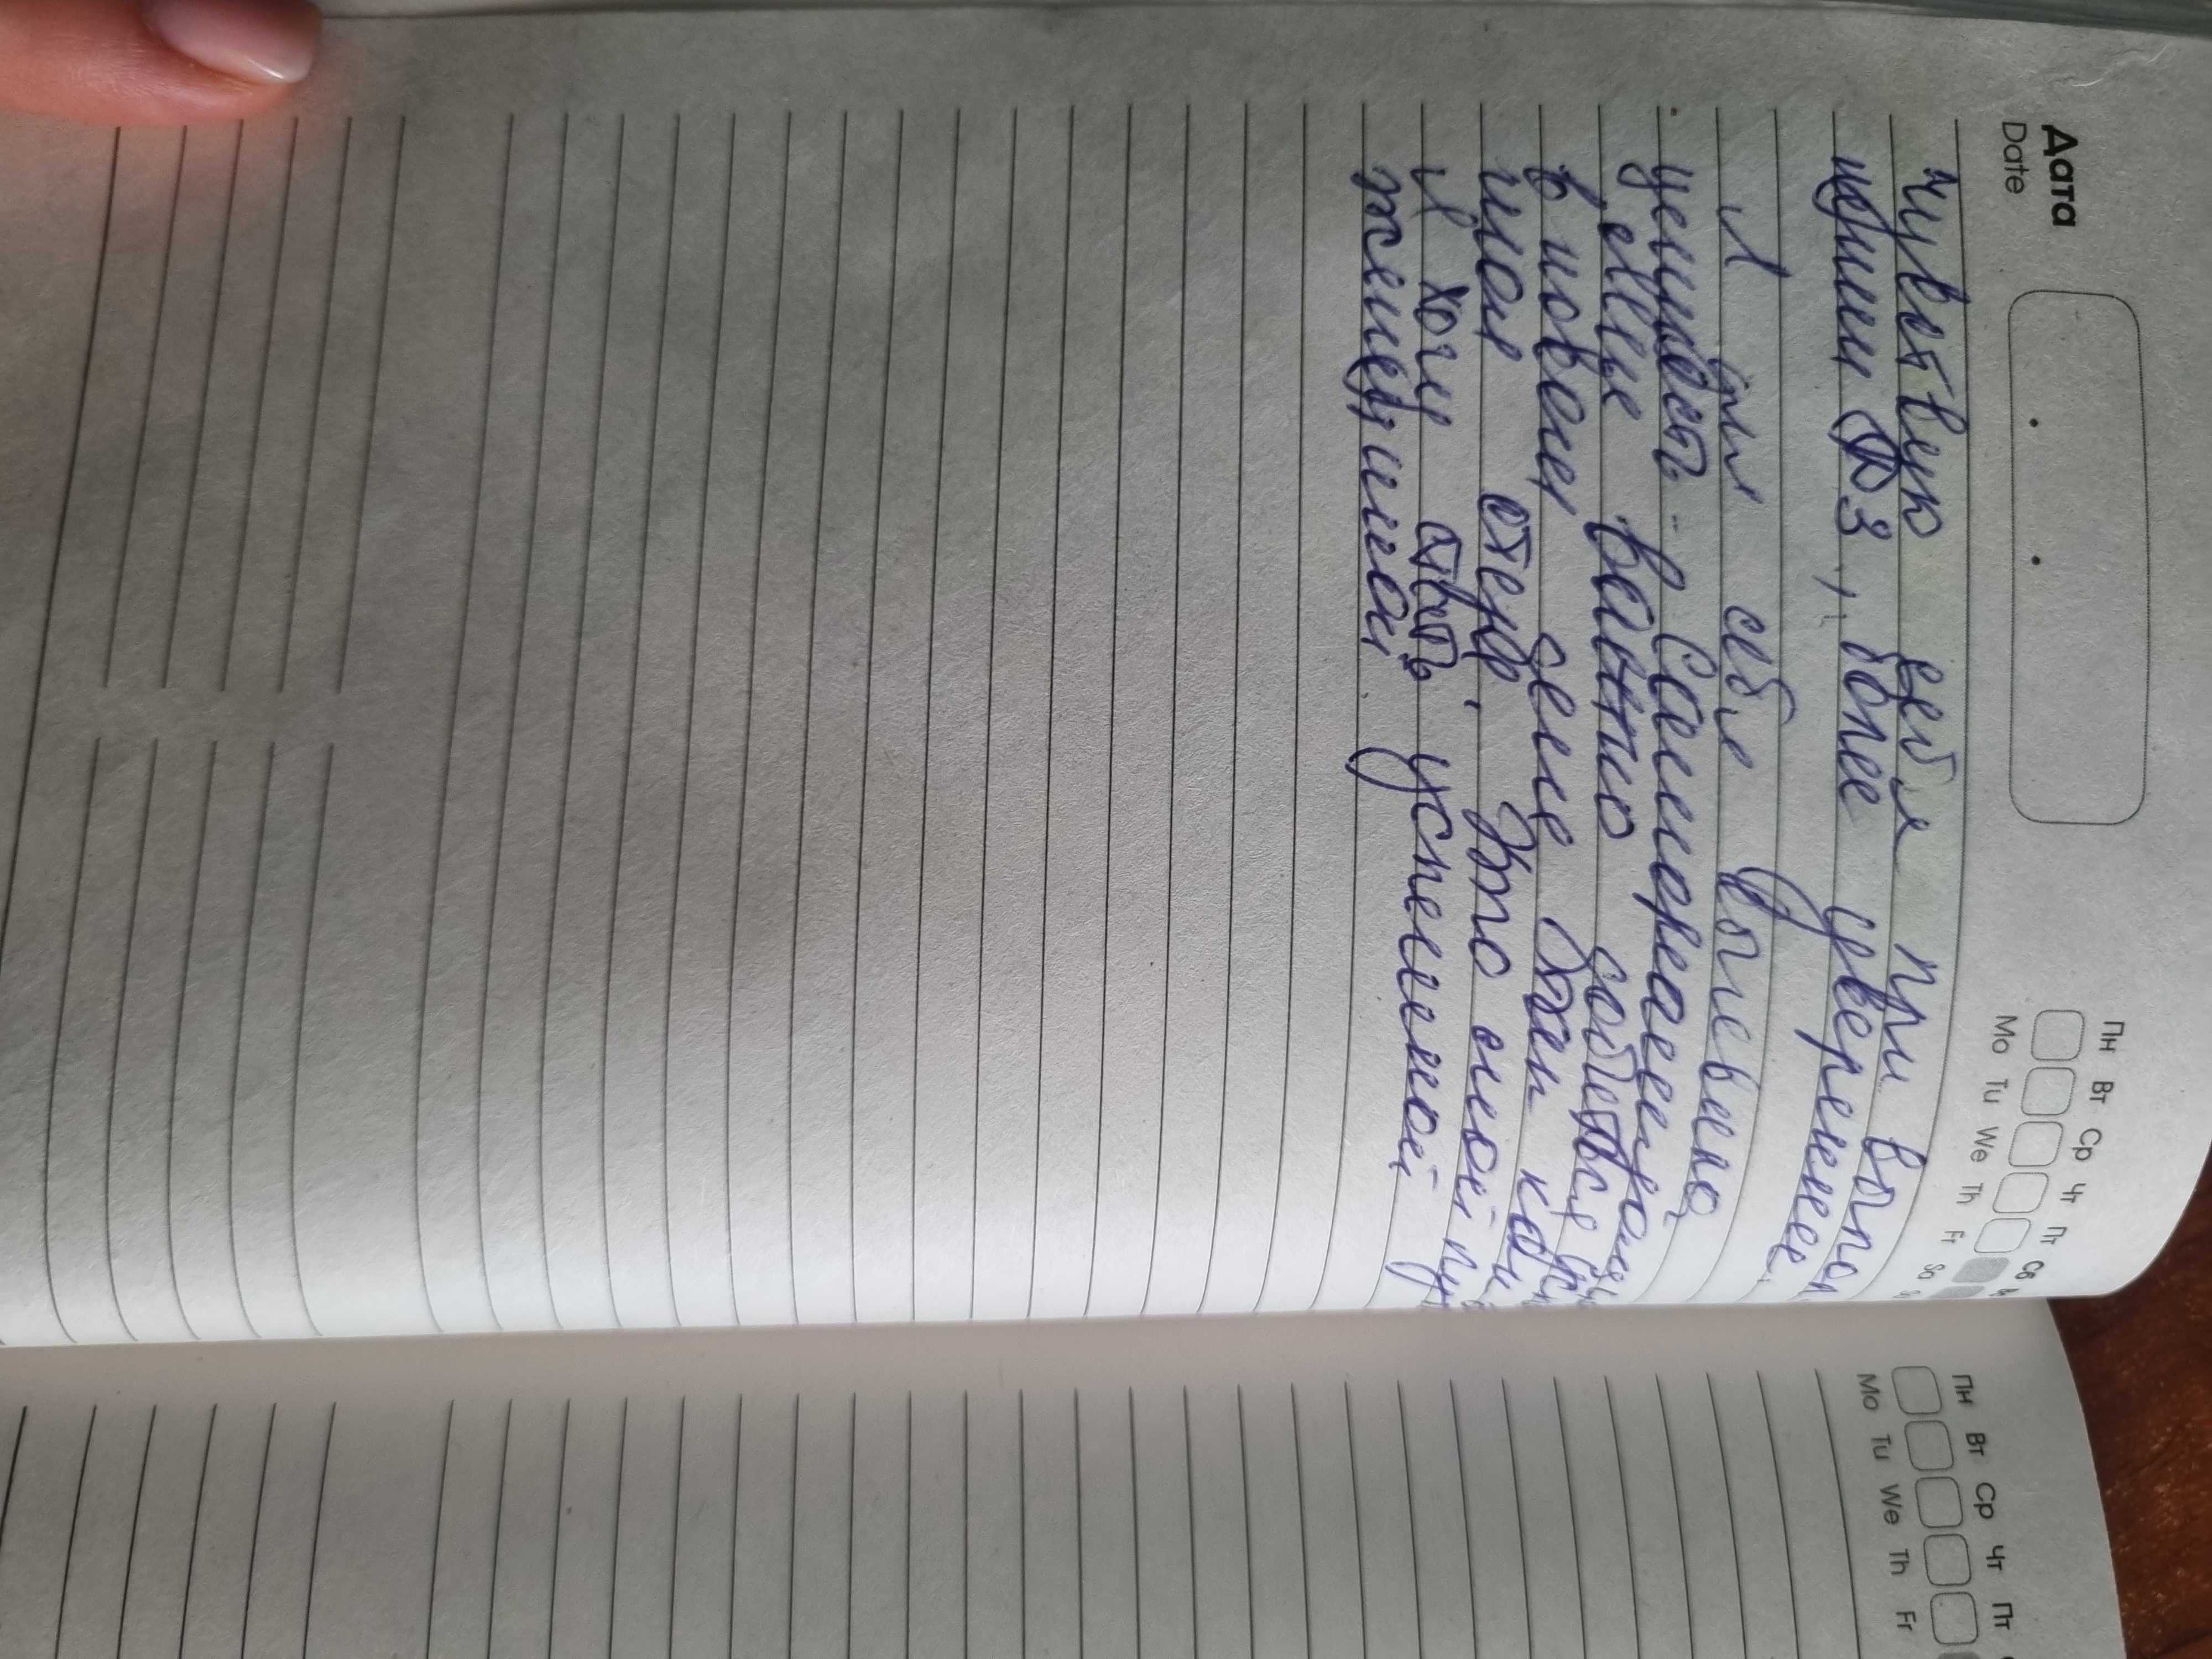 Дата
Date
Пн Вт Ср Чт Пт Сб
Mo Tu We Th Fr Sa Su
чувствую себя при выпол
нении ДЗ, более увереннее.
Я для себя выявила
ценность - Самореализация
Мне важно добиться
в новом деле так как это
моя стезя. Это мой путь
Я хочу стать успешной
женщиной.
Пн Вт Ср Чт Пт
Mo Tu We Th Fr